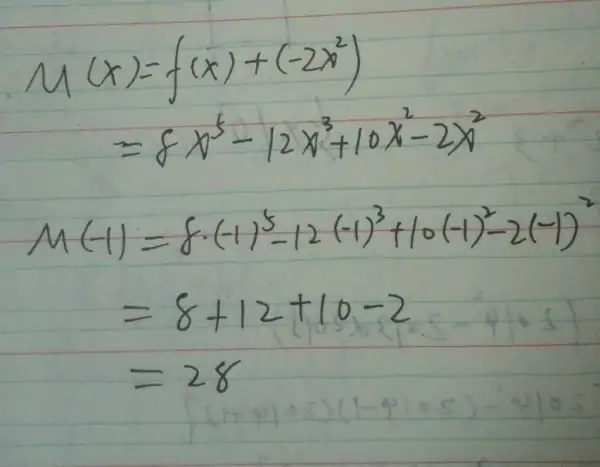 M(x)=f(x)+(-2x²)
=8x⁵-12x³+10x²-2x²
M(-1)=8·(-1)⁵-12(-1)³+10(-1)²-2(-1)²
=8+12+10-2
=28